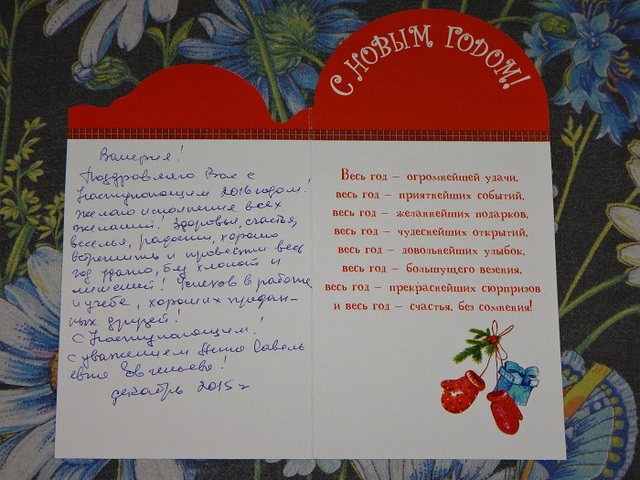 Валерия!
Поздравляю Вас с
наступающим 2016 годом!
Желаю исполнения всех
желаний! Здоровья, счастья,
веселья, радости, хорошо
встретить и провести весь
год удачно, без хлопот и
лишений! Успехов в работе
и учебе, хороших предан-
ных друзей!
С наступающим!
С уважением Анна Савель
евна
декабрь 2015 г
С НОВЫМ ГОДОМ!
Весь год – огромнейшей удачи,
весь год – приятнейших событий,
весь год – желаннейших подарков,
весь год – чудеснейших открытий,
весь год – довольнейших улыбок,
весь год – большущего везения,
весь год – прекраснейших сюрпризов
и весь год – счастья, без сомнения!